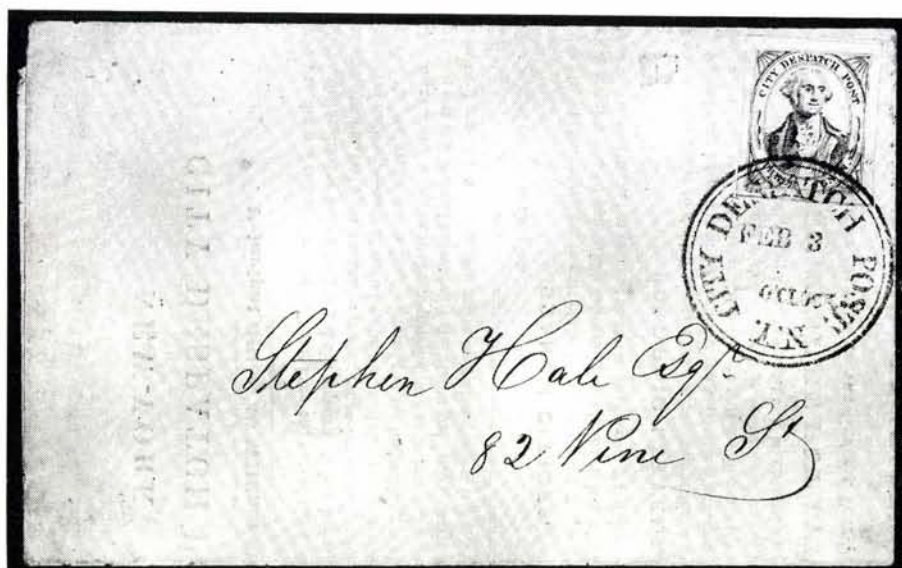 CITY DESPATCH POST
CITY DESPATCH POST. N.Y.
FEB 3
O'CLOCK
Stephen Hale Esqr
82 Pine St